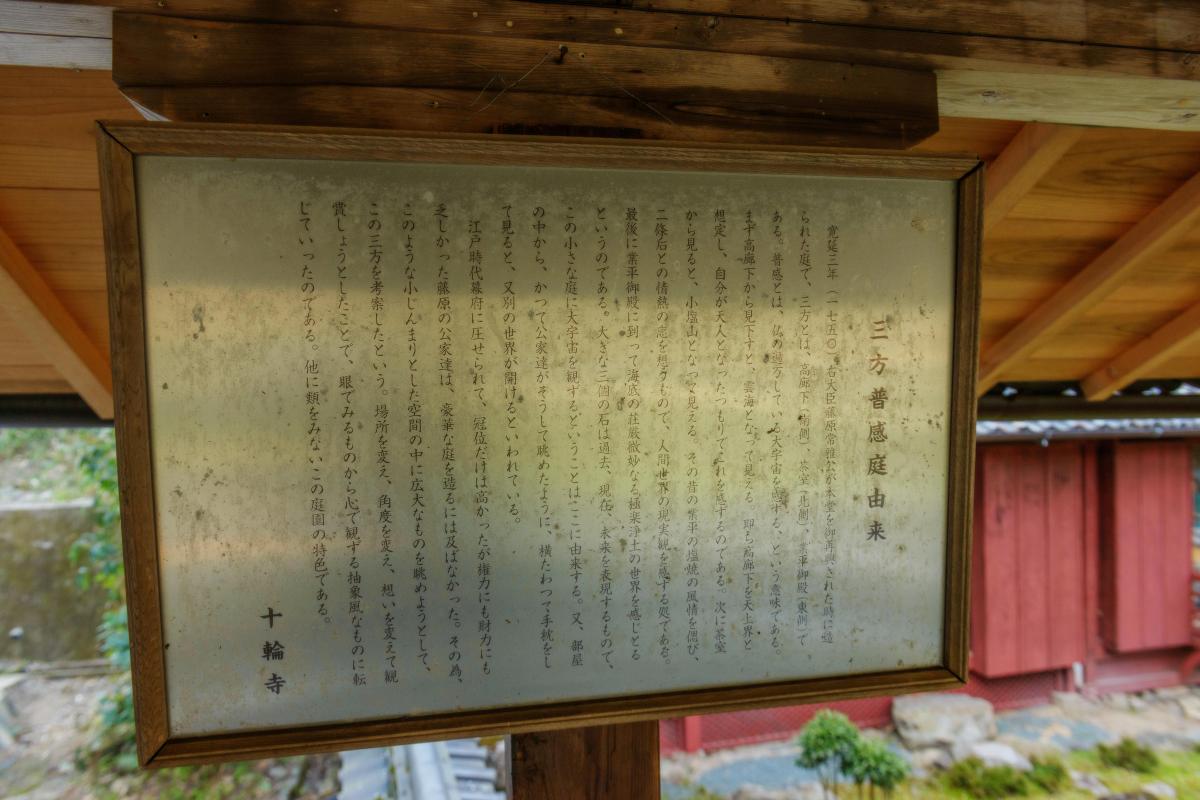 三方普感庭由来
寛延三年(一七五〇)右大臣藤原常雅公が本堂を御再興された時に造
られた庭で、三方とは、高廊下(南側)、茶室(北側)、業平御殿(東側)で
ある。普感とは、仏の遍万している大宇宙を感ずる、という意味である。
まず高廊下から見下すと、雲海となって見える 即ち高廊下を天上界と
想定し、自分が天人となったつもりでこれを感ずるのである。次に茶室
から見ると、小塩山となって見える。その昔の業平の塩焼の風情を偲び、
二條后との情熱の恋を想うもので、人間世界の現実観を感ずる処である。
最後に業平御殿に到って海底の荘厳微妙なる極楽浄土の世界を感じとる
というのである。大きな三個の石は過去、現在、未来を表現するもので、
この小さな庭に大宇宙を観ずるということはここに由来する。又、部屋
の中から、かつて公家達がそうして眺めたように、横たわって手枕をし
て見ると、又別の世界が開けるといわれている。
江戸時代幕府に圧せられて、冠位だけは高かったが権力にも財力にも
乏しかった藤原の公家達は、豪華な庭を造るには及ばなかった。その為、
このような小じんまりとした空間の中に広大なものを眺めようとして、
この三方を考案したという。場所を変え、角度を変え、想いを変えて観
賞しようとしたことで、眼でみるものから心で観ずる抽象風なものに転
じていったのである。他に類をみないこの庭園の特色である。
十輪寺